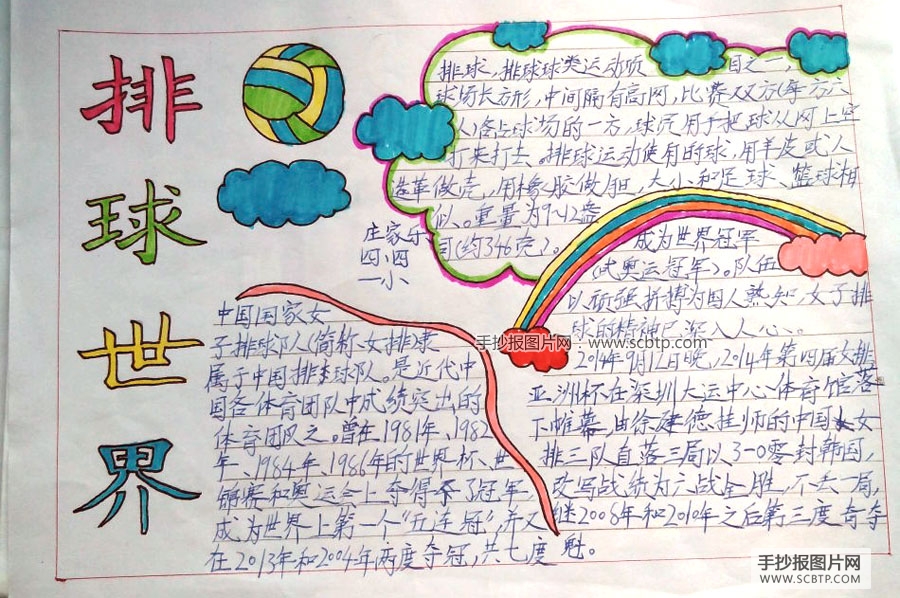 排球世界
排球,排球球类运动项目之一,
球场长方形,中间隔有高网,比赛双方(每方六
人)各占球场的一方,球员用手把球从网上空
打来打去。排球运动使用的球,用羊皮或人
造革做壳,用橡胶做胆,大小和足球、篮球相
似。重量为9~12盎
司(约346克)。
庄家乐
四、四
一小
中国国家女
子排球队(简称女排)隶
属于中国排球队。是近代中
国各体育团队中成绩突出的
体育团队之。曾在1981年、1982
年、1984年、1986年的世界杯、世
锦赛和奥运会上夺得了冠军,
成为世界上第一个“五连冠”,并又
在2013年和2004年两度夺冠,共七度
成为世界冠军
(或奥运冠军)。队伍
以顽强拼搏为国人熟知,女子排
球的精神已深入人心、。
2014年9月12日晚,2014年第四届女排
亚洲杯在深圳大运中心体育馆落
下帷幕,由徐建德挂帅的中国女
排三队直落三局以3-0零封韩国,
改写战绩为六战全胜,不失一局,
继2008年和2010年之后第三度夺
魁。
手抄报图片网 - www.scbtp.com
手抄报图片网
WWW.SCBTP.COM